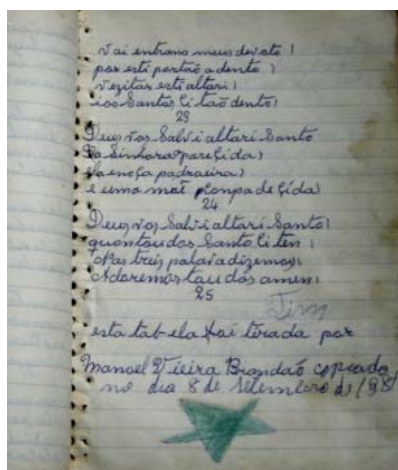 vai entrano meus devoto
por esti portão adento
vezitar esti altari
i os Santos Ci tão dento
23
Deus vos Salvi altari Santo
Da Sinhora pareSida
ela noça padroeira
e uma mãe conpadeSida
24
Deus vos Salvi altari Santo
quantoudos Santo Ci ten
Nas treis palavadizemos
Adoremos toudos amen
25
Fim
esta tabela foi tirada por
Manoel Vieira Brandão copiada
no dia 8 de Setembro de 198